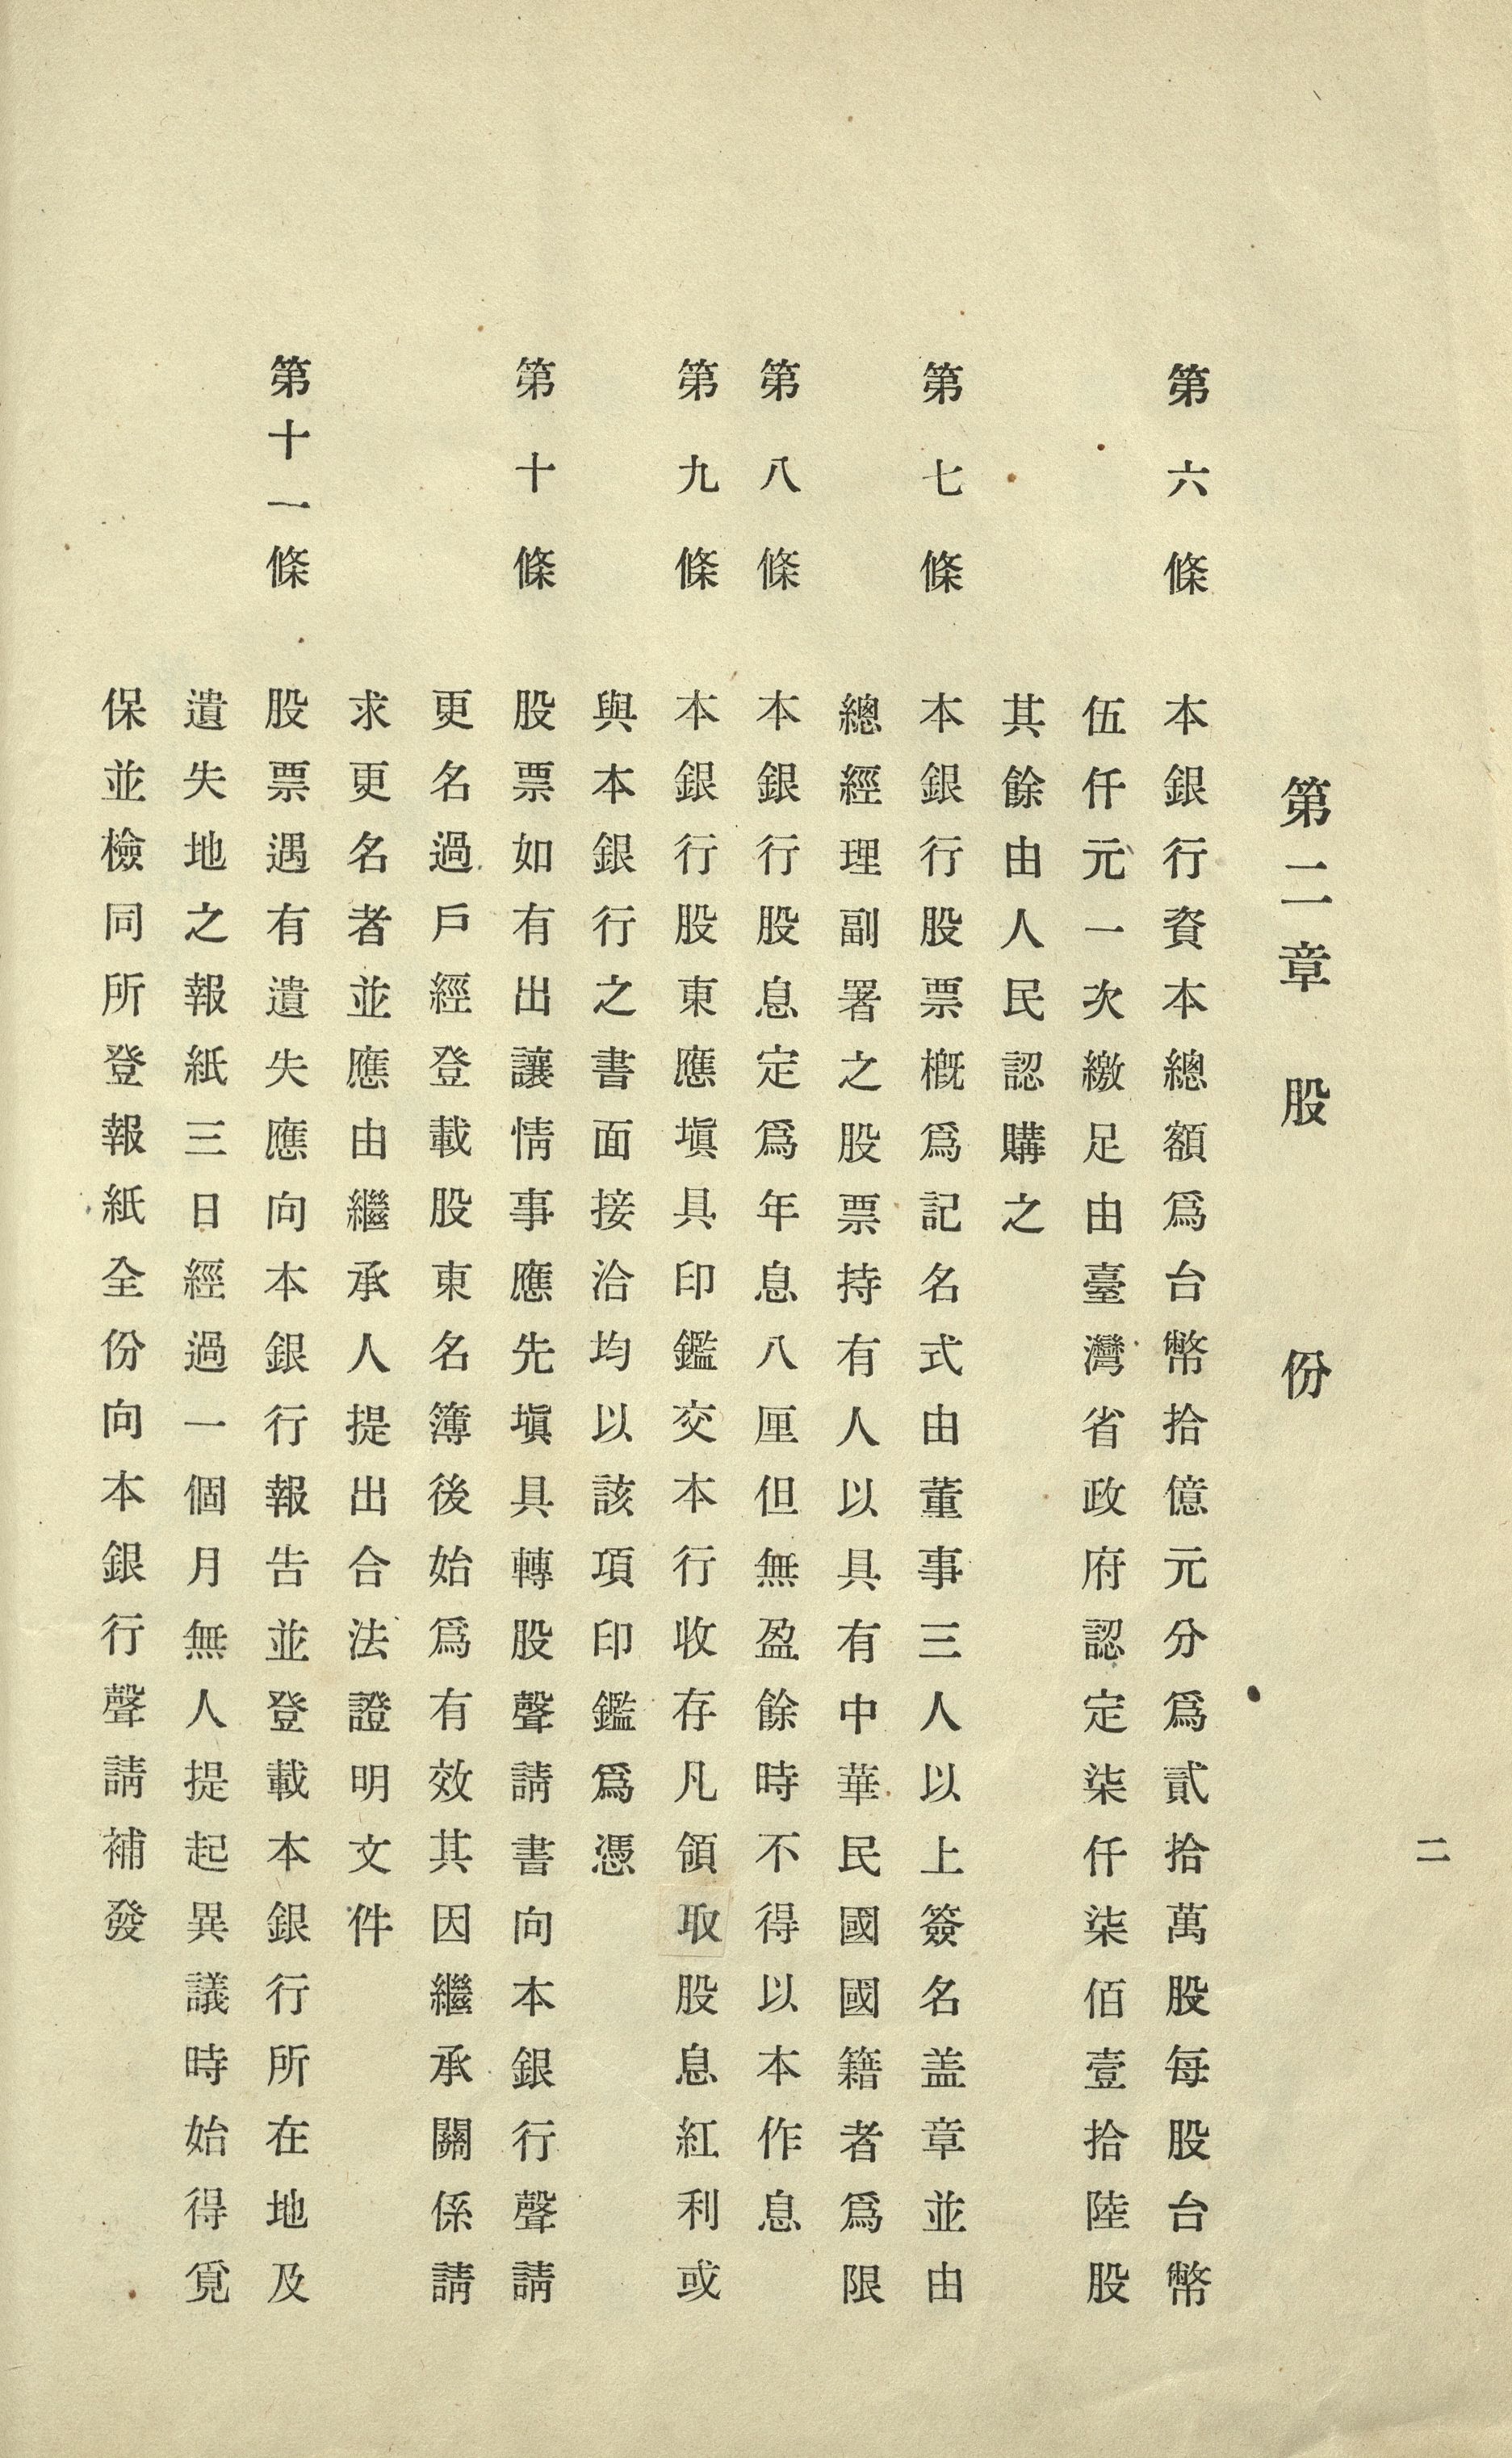 二
第二章　股　份
第六條　本銀行資本總額爲台幣拾億元分爲貳拾萬股每股台幣
伍仟元一次繳足由臺灣省政府認定柒仟柒佰壹拾陸股
其餘由人民認購之
第七條　本銀行股票概爲記名式由董事三人以上簽名盖章並由
總經理副署之股票持有人以具有中華民國國籍者爲限
第八條　本銀行股息定爲年息八厘但無盈餘時不得以本作息
第九條　本銀行股東應塡具印鑑交本行收存凡領取股息紅利或
與本銀行之書面接洽均以該項印鑑爲憑
第十條　股票如有出讓情事應先塡具轉股聲請書向本銀行聲請
更名過戶經登載股東名簿後始爲有效其因繼承關係請
求更名者並應由繼承人提出合法證明文件
第十一條　股票遇有遺失應向本銀行報告並登載本銀行所在地及
遺失地之報紙三日經過一個月無人提起異議時始得覓
保並檢同所登報紙全份向本銀行聲請補發